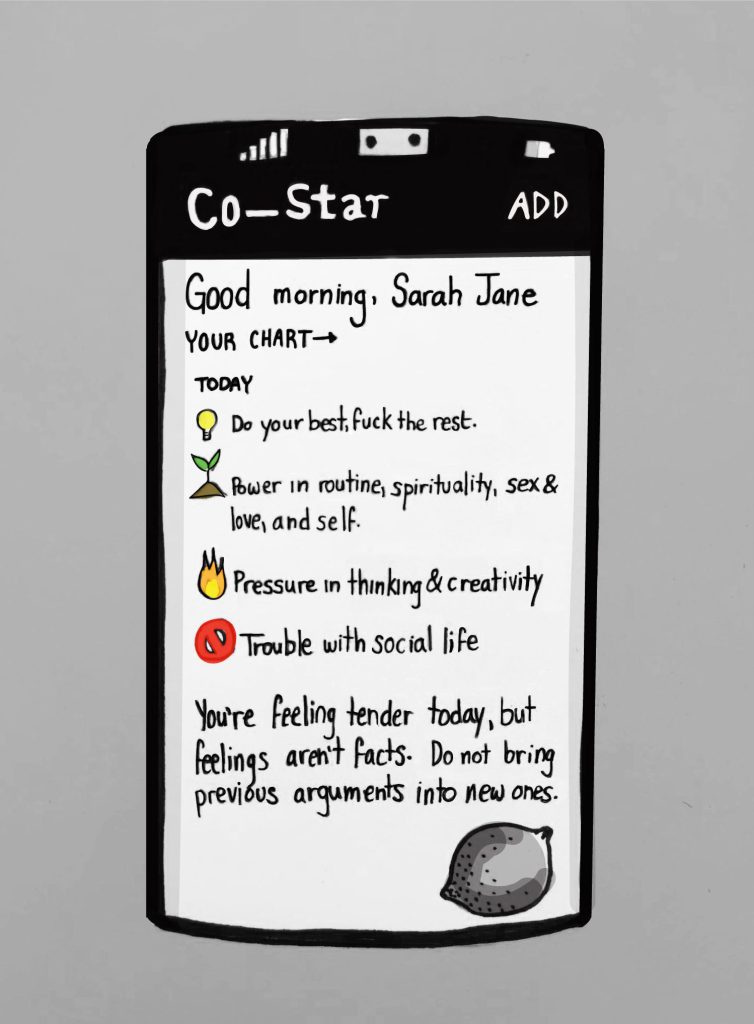 Co—Star
ADD
Good morning, Sarah Jane
YOUR CHART→
TODAY
Do your best, fuck the rest.
Power in routine, spirituality, sex &
love, and self.
Pressure in thinking & creativity
Trouble with social life
You're feeling tender today, but
feelings aren't facts. Do not bring
previous arguments into new ones.